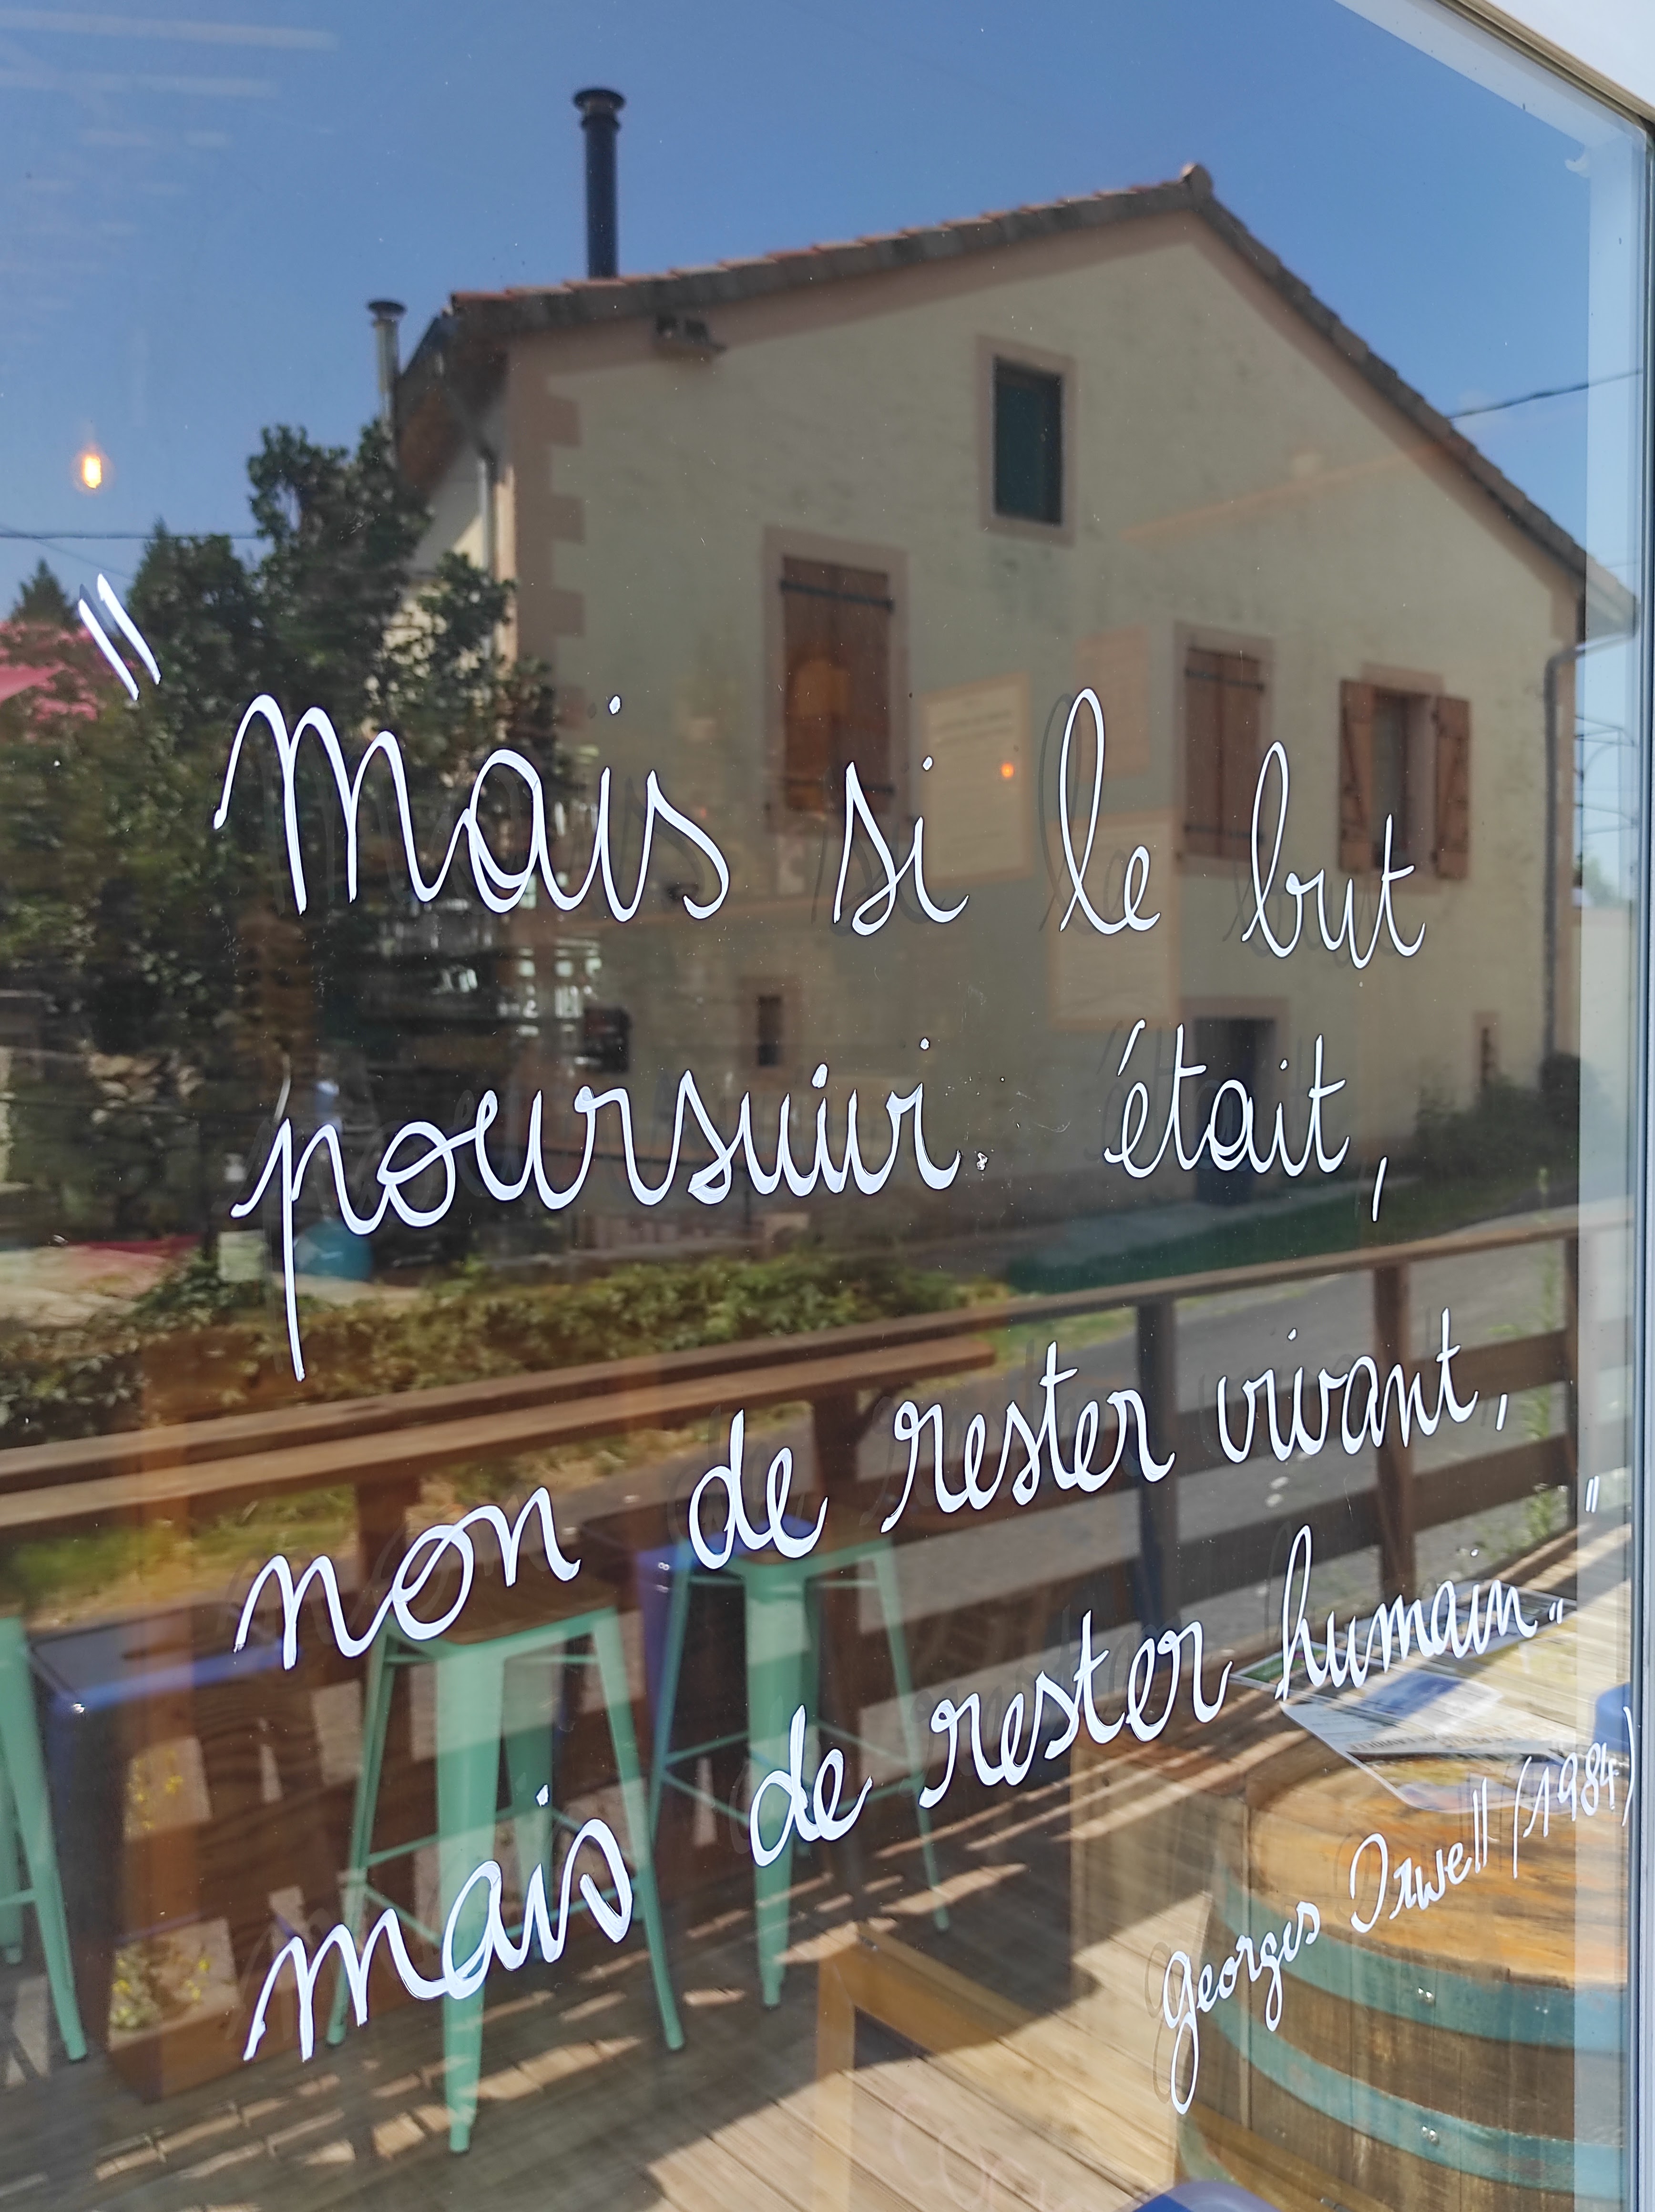 "Mais si le but
poursuivi était,
non de rester vivant,
mais de rester humain.."
Georges Orwell (1984)